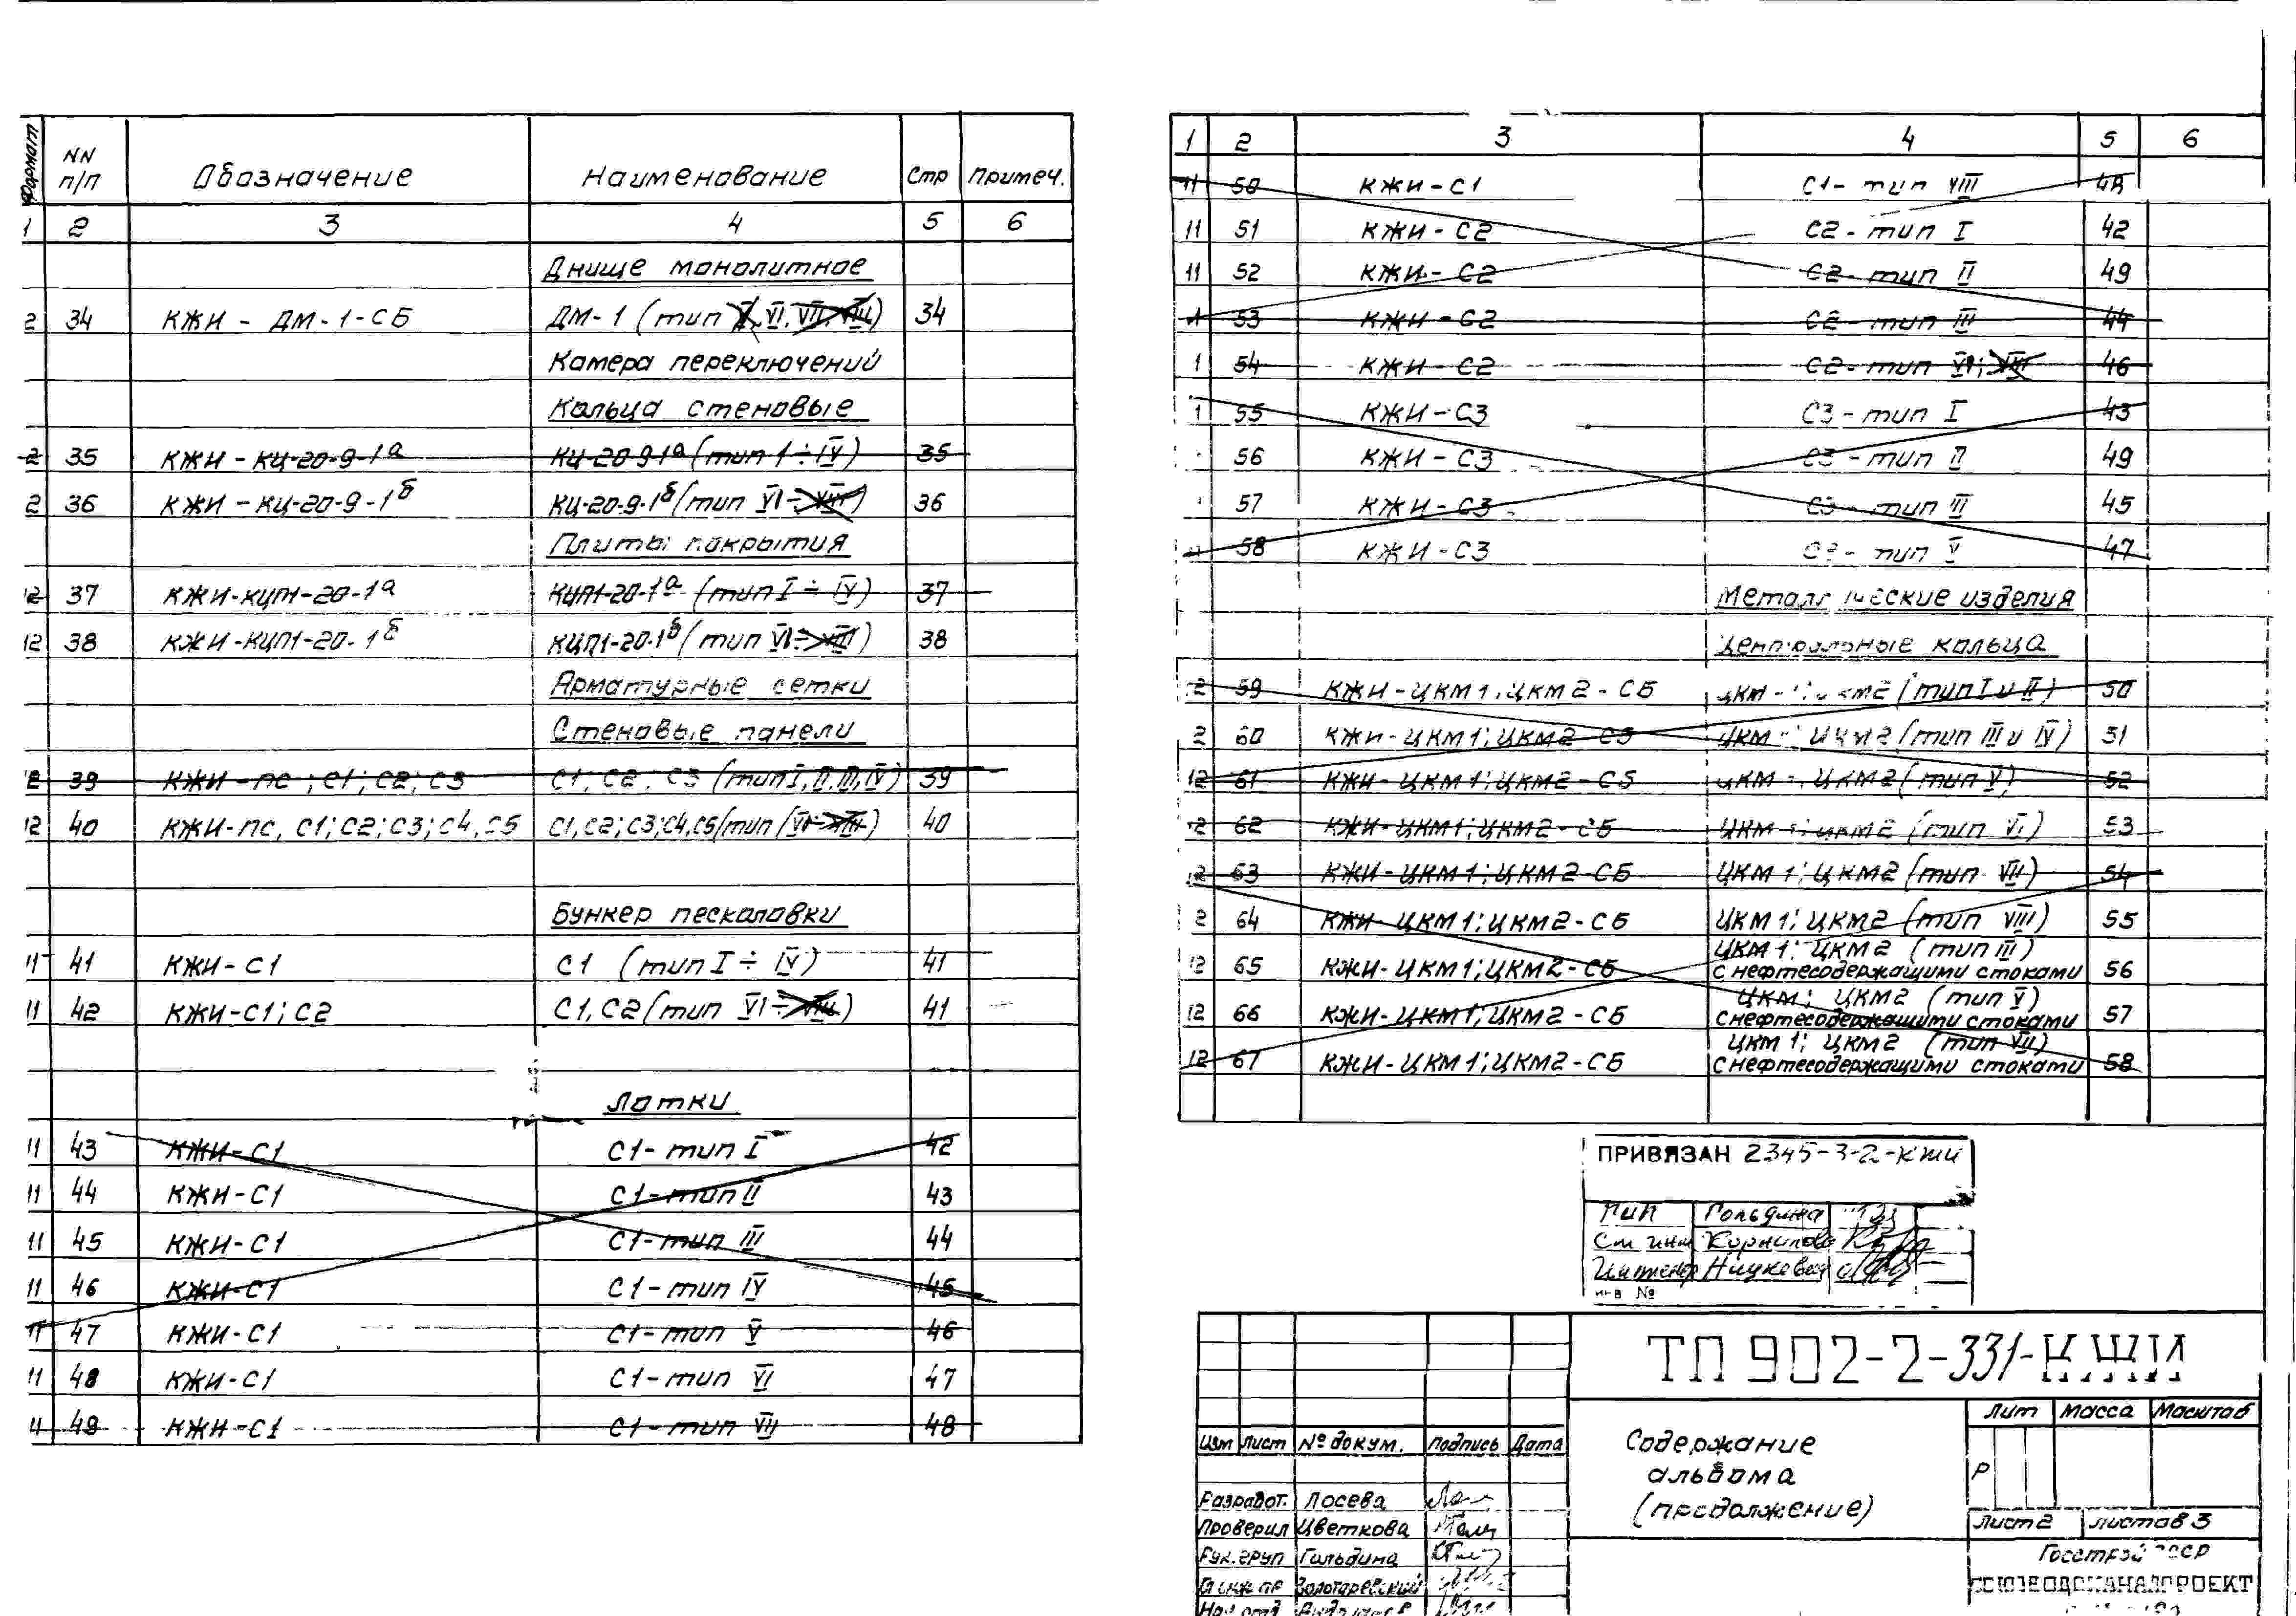 Формат NN п/п Обозначение Наименование Стр Примеч.
1 2 3 4 5 6
Днище монолитное
2 34 КЖИ - ДМ-1-СБ ДМ-1 (тип V, VI, VII, VIII) 34
Камера переключений
Кольца стеновые
2 35 КЖИ - КЦ-20-9-1а КЦ-20-9-1а (тип I ÷ IV) 35
2 36 КЖИ - КЦ-20-9-1б КЦ-20-9-1б (тип VI ÷ VIII) 36
Плиты покрытия
12 37 КЖИ-КЦП1-20-1а КЦП1-20-1а (тип I ÷ IV) 37
12 38 КЖИ-КЦП1-20-1б КЦП1-20-1б (тип VI ÷ VIII) 38
Арматурные сетки
Стеновые панели
12 39 КЖИ - ПС ; С1; С2; С3 С1; С2; С3 (тип I, II, III, IV) 39
12 40 КЖИ-ПС, С1; С2; С3; С4, С5 С1, С2; С3; С4, С5 (тип VI ÷ VIII) 40
Бункер песколовки
11 41 КЖИ-С1 С1 (тип I ÷ IV) 41
11 42 КЖИ-С1; С2 С1, С2 (тип VI ÷ VIII) 41
Лотки
11 43 КЖИ-С1 С1- тип I 42
11 44 КЖИ-С1 С1- тип II 43
11 45 КЖИ-С1 С1- тип III 44
11 46 КЖИ-С1 С1- тип IV 45
11 47 КЖИ-С1 С1- тип V 46
11 48 КЖИ-С1 С1- тип VI 47
11 49 КЖИ-С1 С1- тип VII 48
1 2 3 4 5 6
11 50 КЖИ-С1 С1- тип VIII 48
11 51 КЖИ-С2 С2- тип I 42
11 52 КЖИ-С2 С2- тип II 49
11 53 КЖИ-С2 С2- тип III 44
1 54 КЖИ-С2 С2- тип VI; VIII 46
1 55 КЖИ-С3 С3- тип I 43
56 КЖИ-С3 С3- тип II 49
57 КЖИ-С3 С3- тип III 45
58 КЖИ-С3 С3- тип V 47
Металлические изделия
Центральные кольца
2 59 КЖИ-ЦКМ1; ЦКМ2-СБ ЦКМ-1; ЦКМ2 (тип I и II) 50
2 60 КЖИ-ЦКМ1; ЦКМ2-СБ ЦКМ ; ЦКМ2 (тип III и IV) 51
12 61 КЖИ-ЦКМ1; ЦКМ2-СБ ЦКМ ; ЦКМ2 (тип V) 52
12 62 КЖИ-ЦКМ1; ЦКМ2-СБ ЦКМ 1; ЦКМ2 (тип VI) 53
12 63 КЖИ-ЦКМ1; ЦКМ2-СБ ЦКМ1; ЦКМ2 (тип VII) 54
2 64 КЖИ-ЦКМ1; ЦКМ2-СБ ЦКМ1; ЦКМ2 (тип VIII) 55
12 65 КЖИ-ЦКМ1; ЦКМ2-СБ ЦКМ1; ЦКМ2 (тип III) с нефтесодержащими стоками 56
12 66 КЖИ-ЦКМ1; ЦКМ2-СБ ЦКМ; ЦКМ2 (тип V) с нефтесодержащими стоками 57
12 67 КЖИ-ЦКМ1; ЦКМ2-СБ ЦКМ1; ЦКМ2 (тип VII) с нефтесодержащими стоками 58
ПРИВЯЗАН 2345-3-2-кжи
Гип Гольдина
Ст инж
Инженер
инв №
ТП 902-2-331-КЖИ
Изм Лист № докум. Подпись Дата
Содержание
альбома
(продолжение)
Лит Масса Масштаб
Р
Лист 2 Листов 3
Разработ. Лосева
Проверил Цветкова
Рук. груп Гольдина
Гл инж пр Золотаревский
Нач отд
Госстрой СССР
СОЮЗВОДОКАНАЛПРОЕКТ